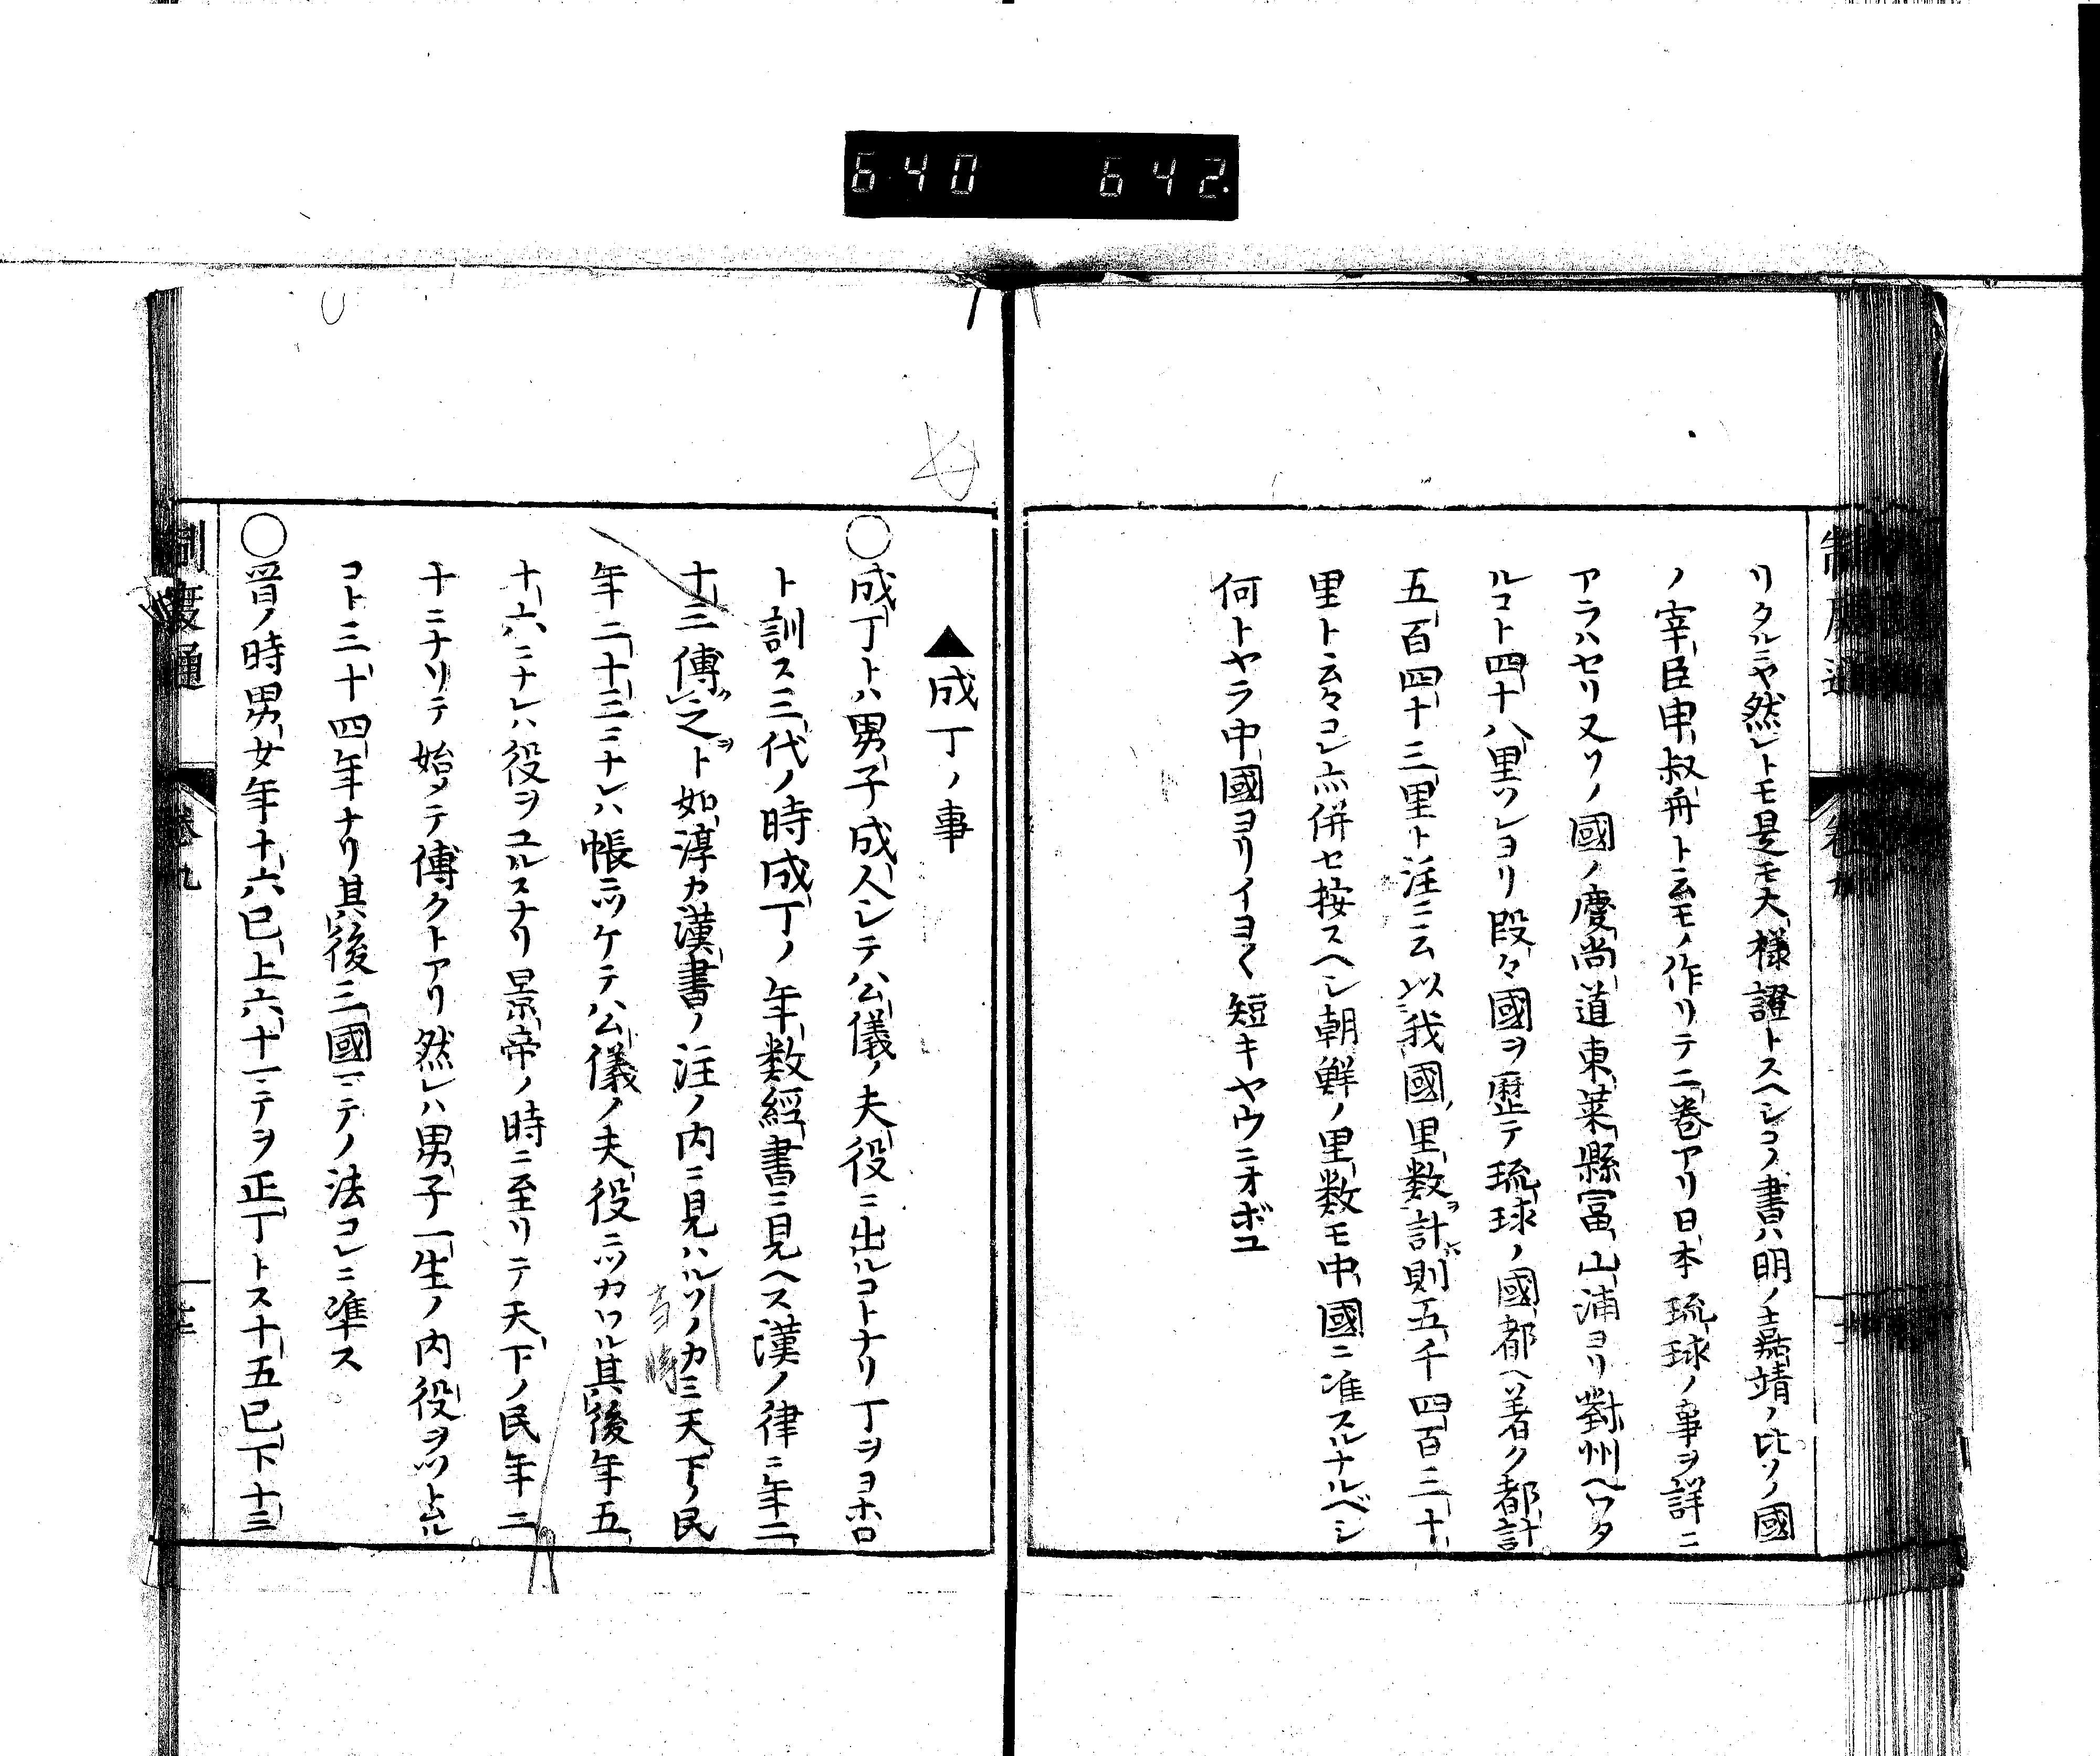 640 642
リタルニヤ然レトモ是モ大様證トスヘシコノ書ハ明ノ嘉靖ノ比ソノ國
ノ宰臣申叔舟ト云モノ作リテ二巻アリ日本琉球ノ事ヲ詳ニ
アラハセリ又ソノ國ノ慶尚道東莱縣冨山浦ヨリ對州ヘワタ
ルコト四十八里ソレヨリ段々國ヲ歴テ琉球ノ國都ヘ著ク都計
五百四十三里ト注ニ云以我國ノ里数ヲ計ハ則五千四百三十
里ト云々コレ亦併セ按スヘシ朝鮮ノ里数モ中國ニ准スルナルベシ
何トヤラ中國ヨリイヨ〱短キヤウニオボユ
▲成丁ノ事
○成丁トハ男子成人シテ公儀ノ夫役ニ出ルコトナリ丁ヲヨホロ
ト訓ス三代ノ時成丁ノ年数經書ニ見ヘス漢ノ律ニ年二
十三傅之ヲト如淳カ漢書ノ注ノ内ニ見ハルソノカミ天下ノ民
年二十三ニナレハ帳ニツケテ公儀ノ夫役ニツカワル其後年五
十六ニナレハ役ヲユルスナリ景帝ノ時ニ至リテ天下ノ民年二
十ニナリテ始メテ傅クトアリ然レハ男子一生ノ内役ヲツトムル
コト三十四年ナリ其後三國ニテノ法コレニ準ス
○晉ノ時男女年十六已上六十ニテヲ正丁トス十五已下十三
制度通
巻九